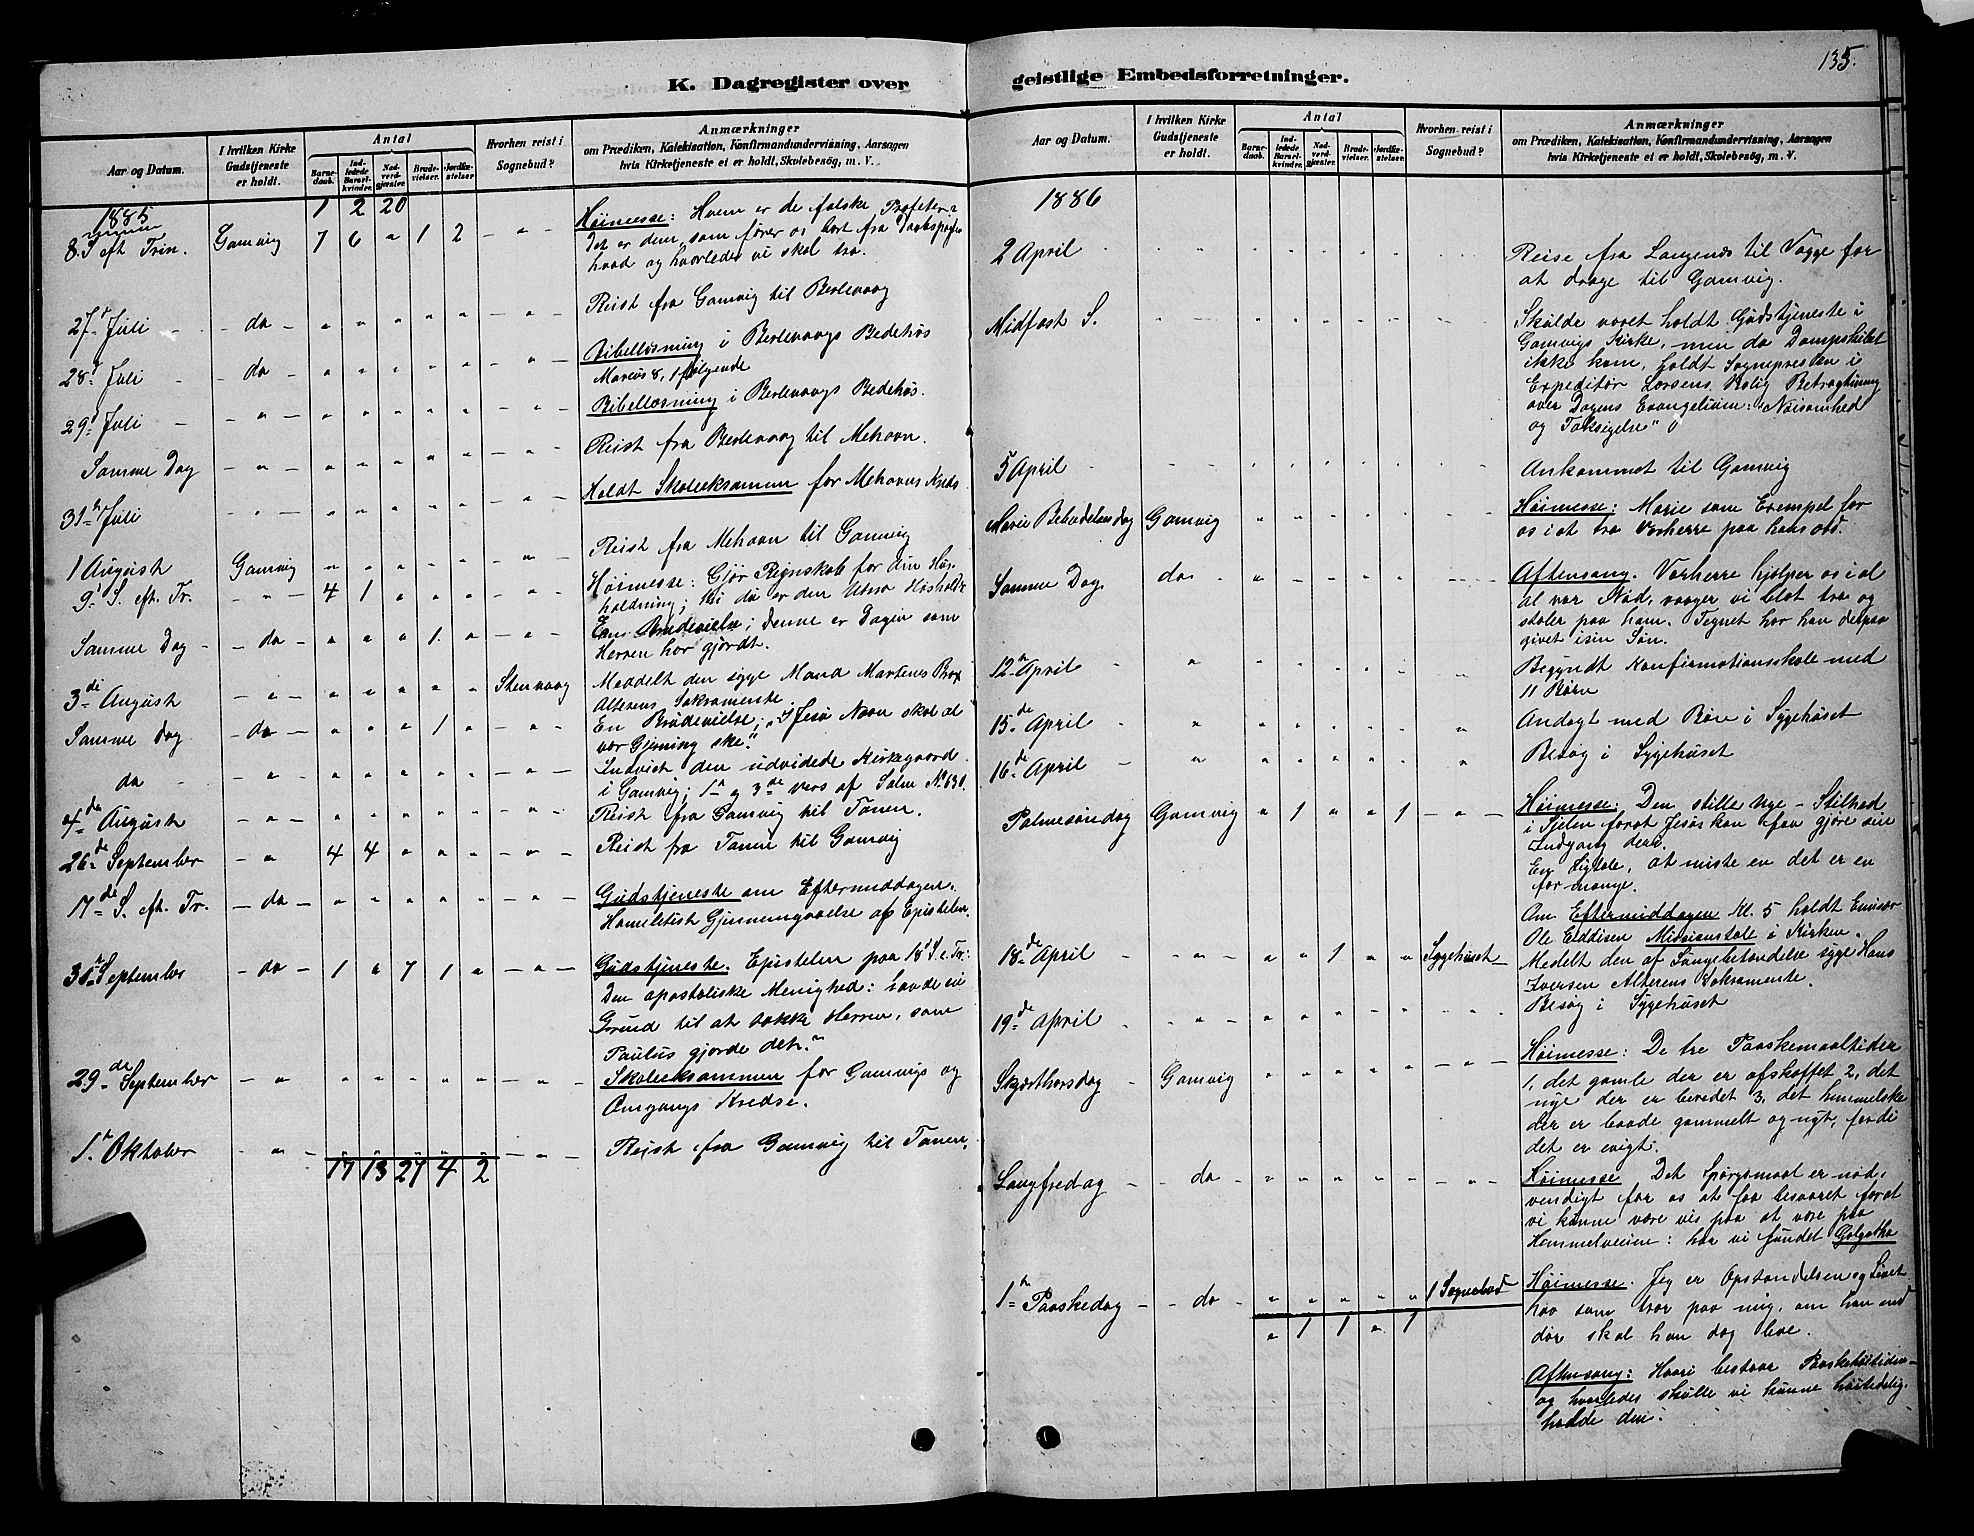 K. Dagregister over
Aar og Datum.
I hvilken Kirke Gudstjeneste er holdt.
Antal
Barnedaab.
Indledede Barselkvinder.
Nadverdgjæster.
Brudevielser.
Jordfæstelser
Hvorhen reist i Sognebud?
Anmærkninger
om Prædiken, Katekisation, Konfirmandundervisning, Aarsagen
hvis Kirketjeneste et er holdt, Skolebesøg, m. V.
1 2 20
1885
8. S. eft Trin. Gamvig 7 6 " 1 2 – " – Høimesse: Hvem er de falske Profeter?
Det er dem, som fører os bort fra
hvad og hvorledes vi skal tro.
27de Juli – do – Reist fra Gamvig til Berlevaag
28de Juli – do – Bibellæsning i Berlevaags Bedehus
Marcus 8, 1 følgende
29de Juli – " – Bibellæsning i Berlevaags Bedehus.
Samme Dag – " – Reist fra Berlevaag til Mehavn.
31te Juli – " – Holdt Skoleeksamen for Mehavns Kreds
1 August Gamvig – " – Reist fra Mehavn til Gamvig
9de S. eft. Tr. – " – 4 1 " " " – " – Høimesse: Gjør Regnskab for din Hus-
holdning; thi du er den Utro Husholder
Samme Dag – do – " " " 1 " – " – En Brudevielse; denne er Dagen som
Herren har gjordt.
3die August – " – " " " " " Stenvaag Meddelt den syge Mand Martenes
Alterens Sakramente
Samme Dag – do – " " " 1 " – " – En Brudevielse; "I Jesu Navn skal al
vor Gjerning ske."
do – " – Indviet den udvidede Kirkegaard
i Gamvig; 1te og 3de vers af Salme No 630.
4de August – " – Reist fra Gamvig til Tanen.
26de September – " 4 4 " " " – " – Reist fra Tanen til Gamvig
17de S. eft. Tr. – do – Gudstjeneste om Eftermiddagen.
Homiletisk Gjennemgaaelse af Epistelen.
30te September – do – 1 " 7 1 " – " – Gudstjeneste. Epistelen paa 18de S. e. Tr.:
Den apostoliske Menighed: havde en
Grund til at takke Herren, som
Paulus gjorde det?"
29de September – " – Skoleeksammen for Gamvigs og
Omgangs Kredse.
1te Oktober – " – Reist fra Gamvig til Tanen.
17 13 27 4 2
135.
geistlige Embedsforretninger.
Aar og Datum.
I hvilken Kirke Gudstjeneste er holdt.
Antal
Barnedaab.
Indledede Barselkvinder.
Nadverdgjæster.
Brudevielser.
Jordfæstelser.
Hvorhen reist i Sognebud?
Anmærkninger
om Prædiken, Katekisation, Konfirmandundervisning, Aarsagen
hvis Kirketjeneste et er holdt, Skolebesøg, m. V.
1886
2 April Reise fra Langenæs til Vagge for
at drage til Gamvig.
Midfast S. Skulde været holdt Gudstjeneste i
Gamvigs Kirke, men da Dampskibet
ikke kom, holdt Sognepresten i
Expeditør Larsens Bolig Betragtning
over Dagens Evangelium: "Nøisomhed
og Taksigelse"
5 April Ankommet til Gamvig
Marie Bebudelsesdag Gamvig Høimesse: Marie som Exempel for
os i at tro Vorherre paa hans ord.
Samme Dag. do Aftensang. Vorherre hjælper os i al
al vor Nød, vaager vi blot tro og
stoler paa ham. Tegnet har han det paa
givet i sin Søn.
12te April Begyndt Konfirmationsskole med
11 Børn
15de April Andagt med Bøn i Sygehuset
16de April Besøg i Sygehuset
Palmesøndag Gamvig " 1 " " 1 – " – Høimesse: Den stille Uge – Stilhed
i Sjelen forat Jesus kan faa gjøre sin
Indgang der.
En Ligtale, at miste en det er en
for mange.
Om Eftermiddagen Kl. 5 holdt Emissær
Ole Eddisen Missionstale i Kirken.
18de April – " – " " 1 " " Sygehuset Medelt den af Lungebetændelse syge Hans
Iversen Alterens Sakramente.
19de April – " – Besøg i Sygehuset
Skjærthorsdag – Gamvig Høimesse: De tre Paaskemaaltider
1, det gamle der er afskaffet 2, det
nye der er beredet 3, det himmelske
der er baade gammelt og nyt, fordi
det er evigt.
Langfredag – do – Høimesse Det Spørgsmaal er nød-
vendigt for os at faa besvaret forat
vi kunne være vis paa at være paa
Himmelveien: har vi fundet Golgatha
1te Paaskedag – do – " " " " " 1 Sognebud Høimesse. Jeg er Opstandelsen og Livet
hvo som tror paa mig, om han end
dør skal han dog leve.
" 1 1 " 1
Aftensang: Hvori bestaar Paaskehøitiden –
og hvorledes skulle vi kunne høitidelig-
holde den.